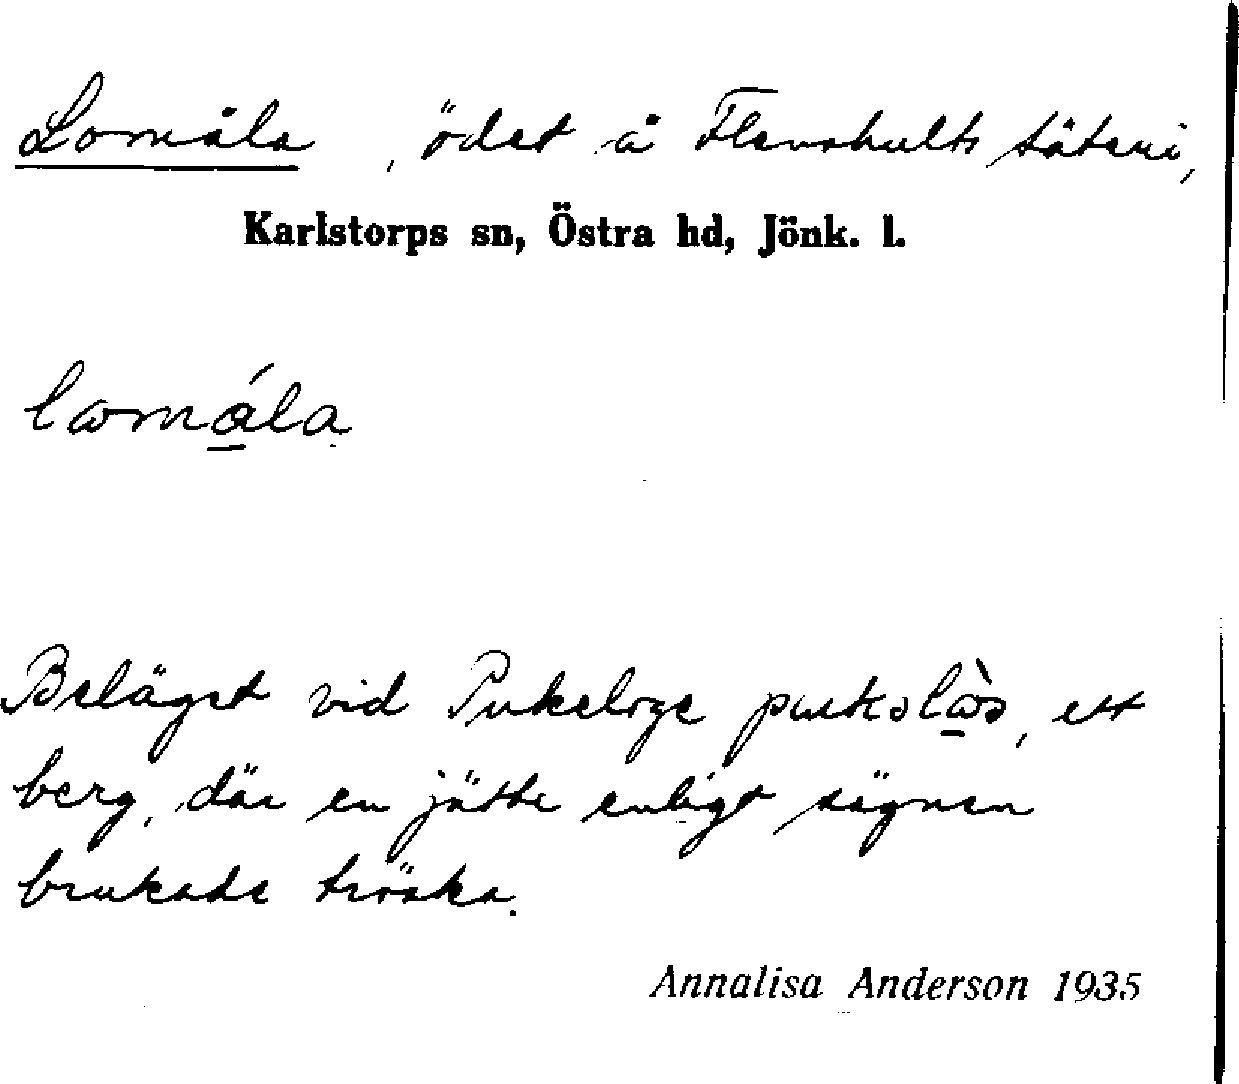 Lomåla, ödet å Flenshults säteri,
Karlstorps sn, Östra hd, Jönk. l.
Beläget vid Pukeloge, ett
berg, där en jätte enligt sägnen
brukade tröska.
Annalisa Anderson 1935